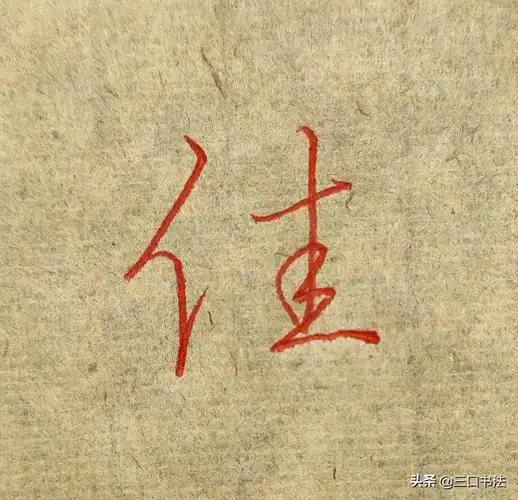 佳
头条 @三口书法